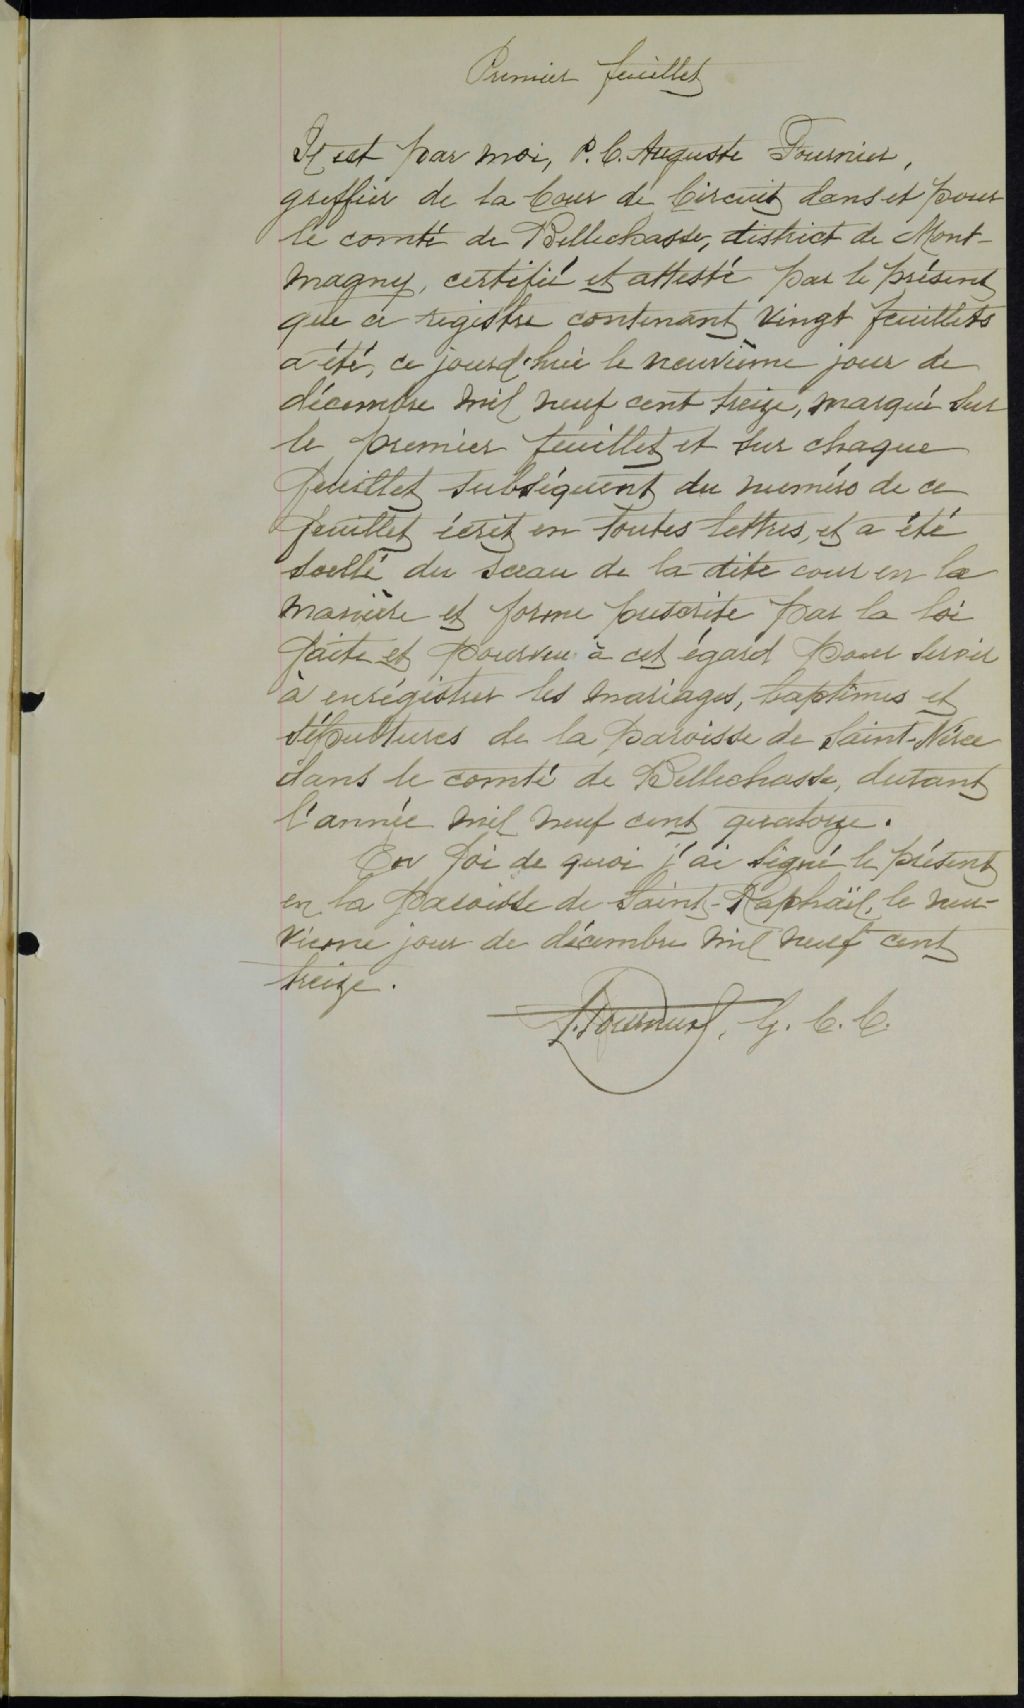 Premier feuillet
Il est par moi, P. C. Auguste Fournier,
greffier de la Cour de Circuit dans et pour
le comté de Bellechasse, district de Mont-
magny, certifié et attesté par le présent
que ce registre contenant vingt feuillets
a été, ce jourd'hui le neuvième jour de
décembre mil neuf cent treize, marqué sur
le premier feuillet et sur chaque
feuillet subséquent du numéro de ce
feuillet écrit en toutes lettres, et a été
scellé du sceau de la dite cour en la
manière et forme prescrite par la loi
faite et pourvue à cet égard pour servir
à enrégistrer les mariages, baptêmes et
sépultures de la paroisse de Saint-Nérée
dans le comté de Bellechasse, durant
l'année mil neuf cent quatorze.
En foi de quoi j'ai signé le présent
en la paroisse de Saint-Raphaël, le neu-
vième jour de décembre mil neuf cent
treize.
Fournier, G. C. C.